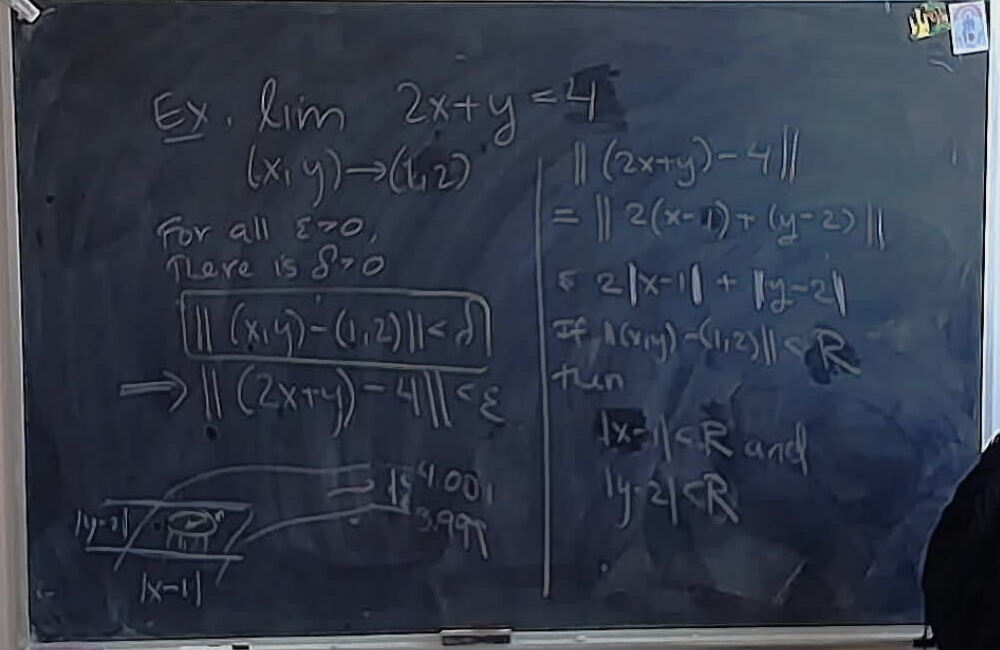 Ex. lim 2x+y = 4
(x,y)→(1,2)
For all ε>0,
There is δ>0
|| (x,y)-(1,2)|| < δ
⟹ || (2x+y) - 4|| < ε
4.001
3.999
|y-2|
|x-1|
|| (2x+y) - 4||
= || 2(x-1) + (y-2) ||
≤ 2|x-1| + |y-2|
If ||(x,y)-(1,2)|| < R
then
|x-1| < R and
|y-2| < R